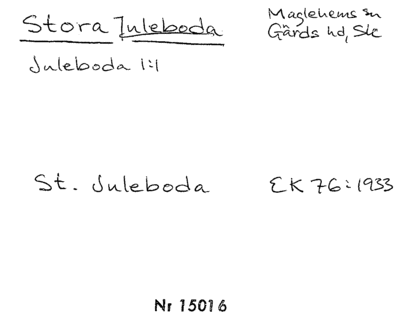 Stora Juleboda
Maglehems sn
Gärds hd, Sk
Juleboda 1:1
St. Juleboda
EK 76:1933
Nr 15016